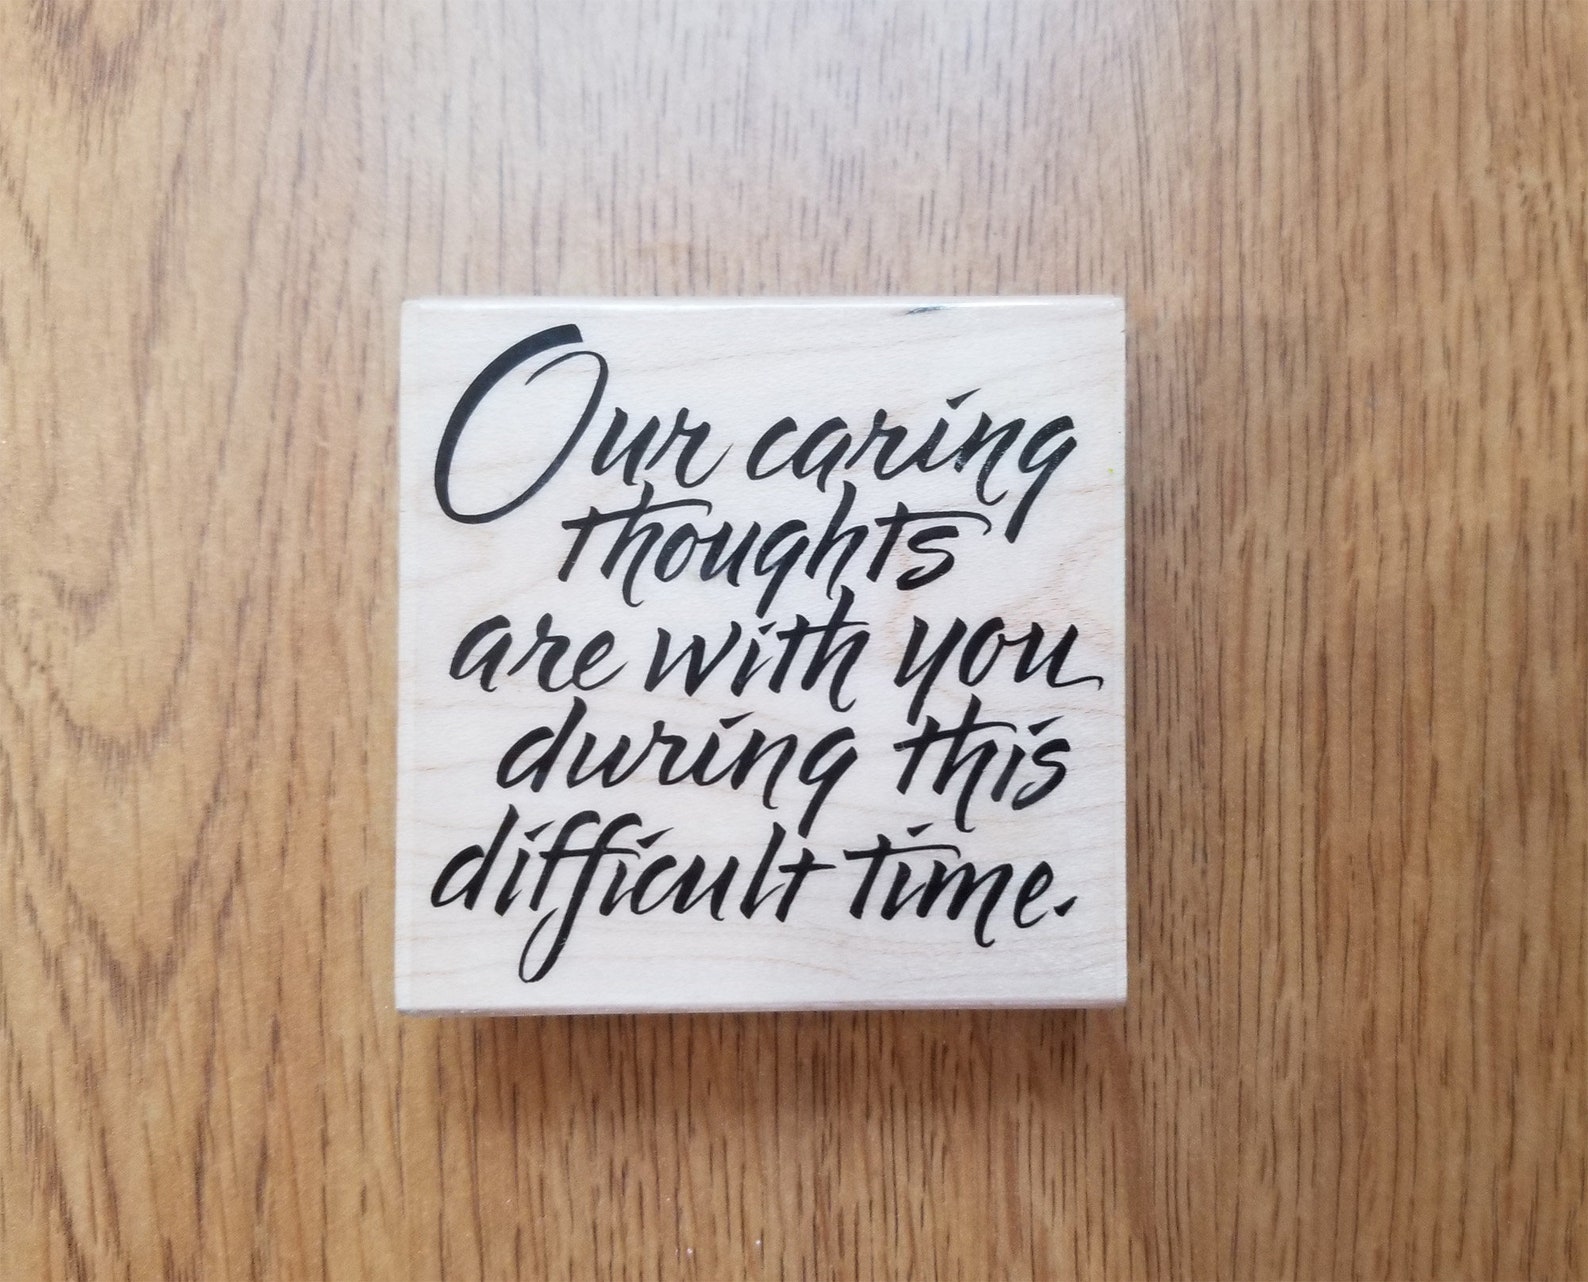 Our caring
thoughts
are with you
during this
difficult time.